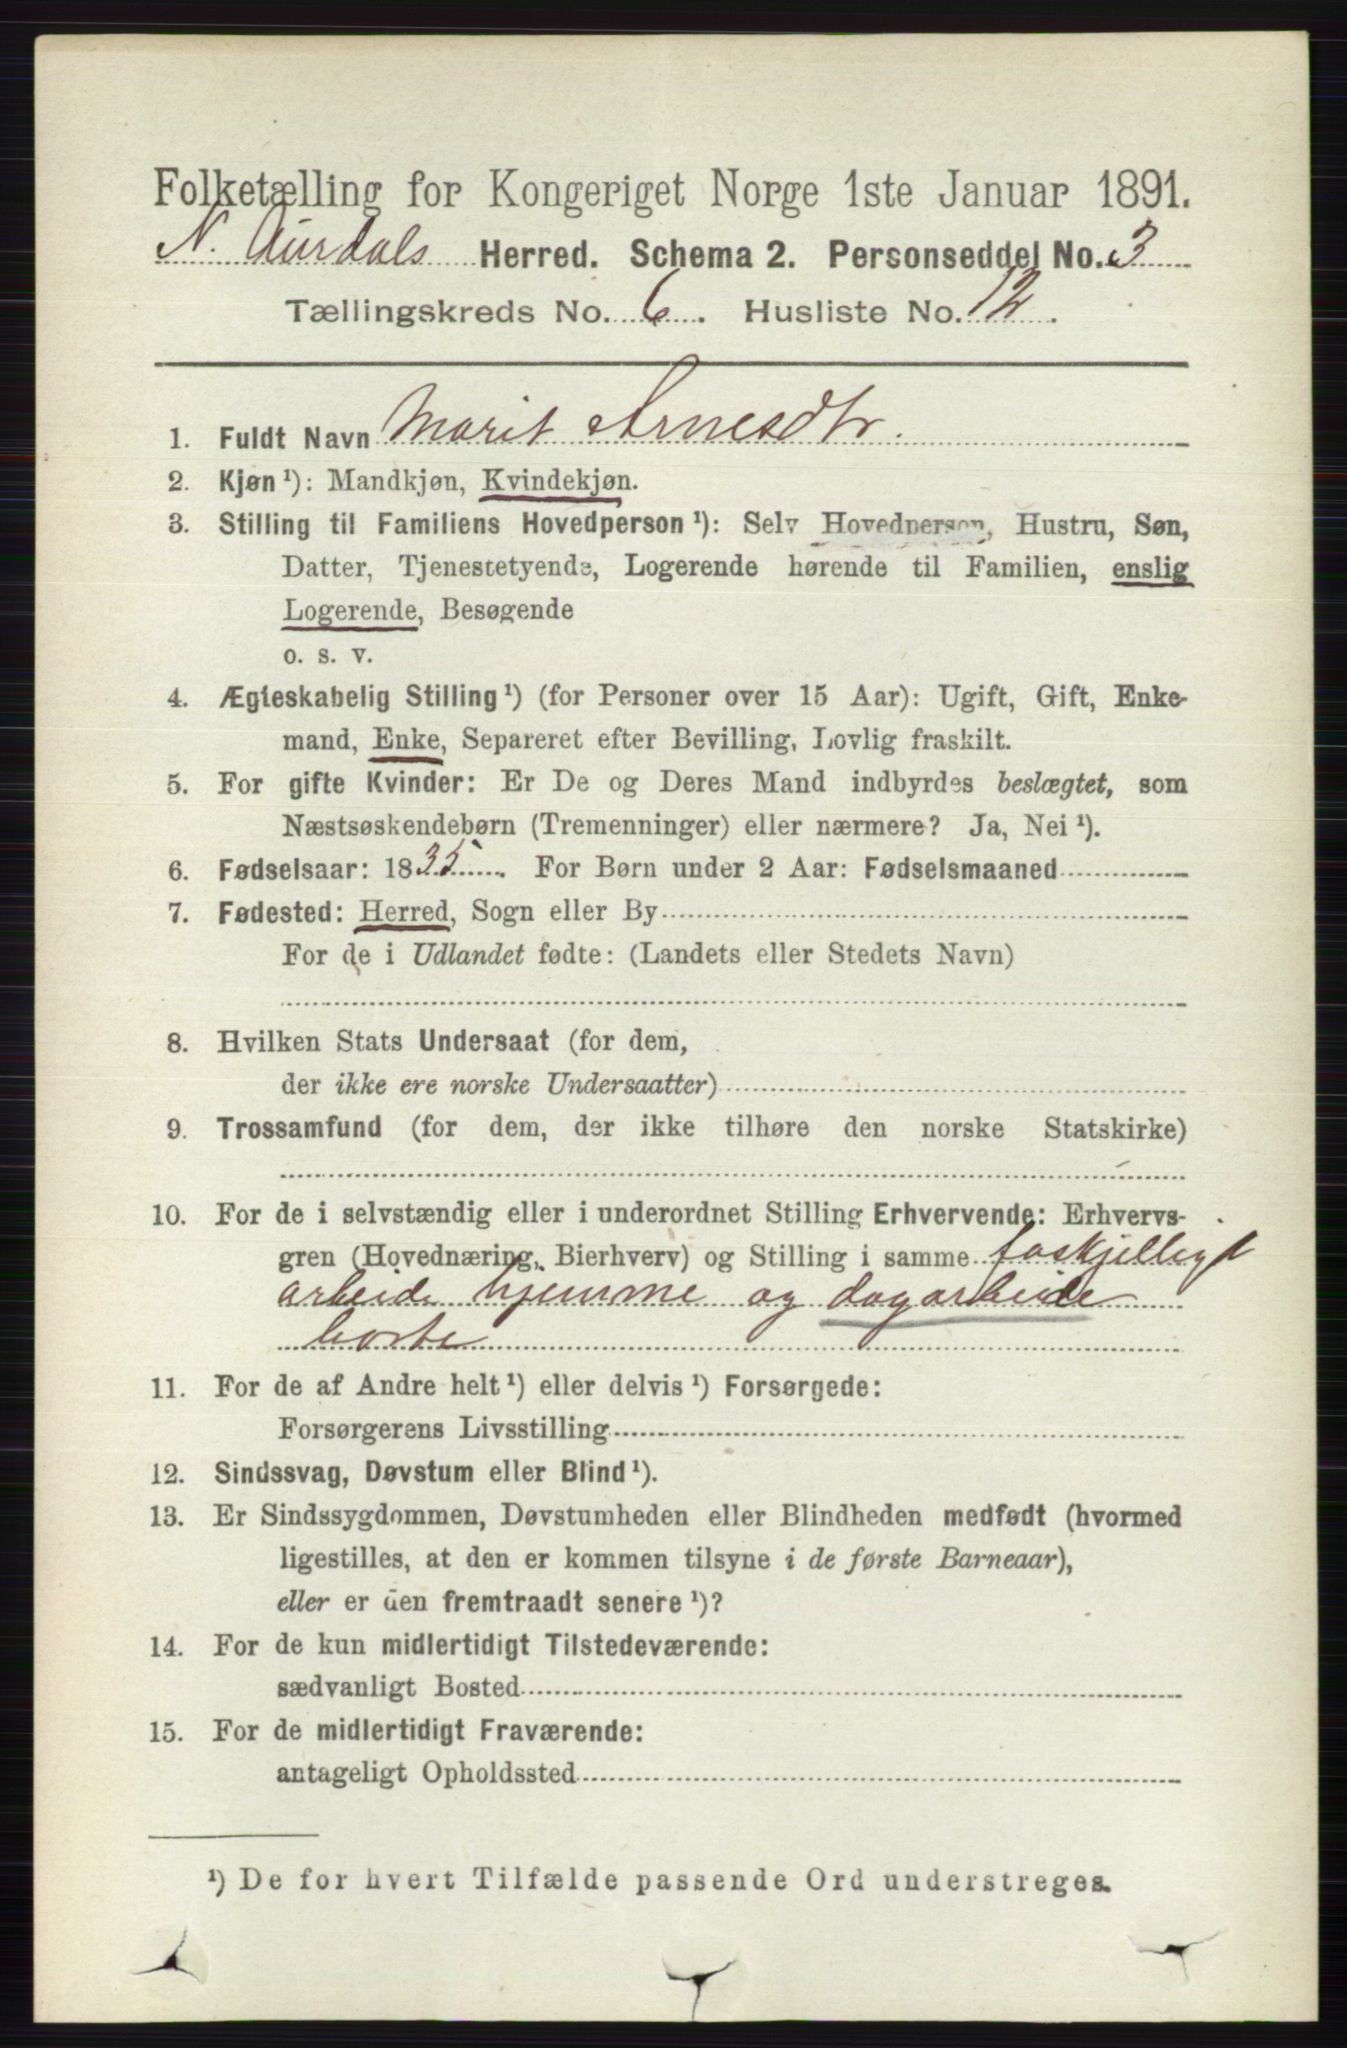 Folketælling for Kongeriget Norge 1ste Januar 1891.
N. Aurdals Herred. Schema 2. Personseddel No. 3
Tællingskreds No. 6. Husliste No. 12.
1. Fuldt Navn Marit Arnesdtr.
2. Kjøn ¹): Mandkjøn, Kvindekjøn.
3. Stilling til Familiens Hovedperson ¹): Selv Hovedperson, Hustru, Søn,
Datter, Tjenestetyende, Logerende hørende til Familien, enslig
Logerende, Besøgende
o. s. v.
4. Ægteskabelig Stilling ¹) (for Personer over 15 Aar): Ugift, Gift, Enke-
mand, Enke, Separeret efter Bevilling, Lovlig fraskilt.
5. For gifte Kvinder: Er De og Deres Mand indbyrdes beslægtet, som
Næstsøskendebørn (Tremenninger) eller nærmere? Ja, Nei ¹).
6. Fødselsaar: 1835. For Børn under 2 Aar: Fødselsmaaned
7. Fødested: Herred, Sogn eller By
For de i Udlandet fødte: (Landets eller Stedets Navn)
8. Hvilken Stats Undersaat (for dem,
der ikke ere norske Undersaatter)
9. Trossamfund (for dem, der ikke tilhøre den norske Statskirke)
10. For de i selvstændig eller i underordnet Stilling Erhvervende: Erhvervs-
gren (Hovednæring, Bierhverv) og Stilling i samme foskjelligt
arbeide hjemme og dagarbeide
borte
11. For de af Andre helt ¹) eller delvis ¹) Forsørgede:
Forsørgerens Livsstilling
12. Sindssvag, Døvstum eller Blind ¹).
13. Er Sindssygdommen, Døvstumheden eller Blindheden medfødt (hvormed
ligestilles, at den er kommen tilsyne i de første Barneaar),
eller er den fremtraadt senere ¹)?
14. For de kun midlertidigt Tilstedeværende:
sædvanligt Bosted
15. For de midlertidigt Fraværende:
antageligt Opholdssted
¹) De for hvert Tilfælde passende Ord understreges.